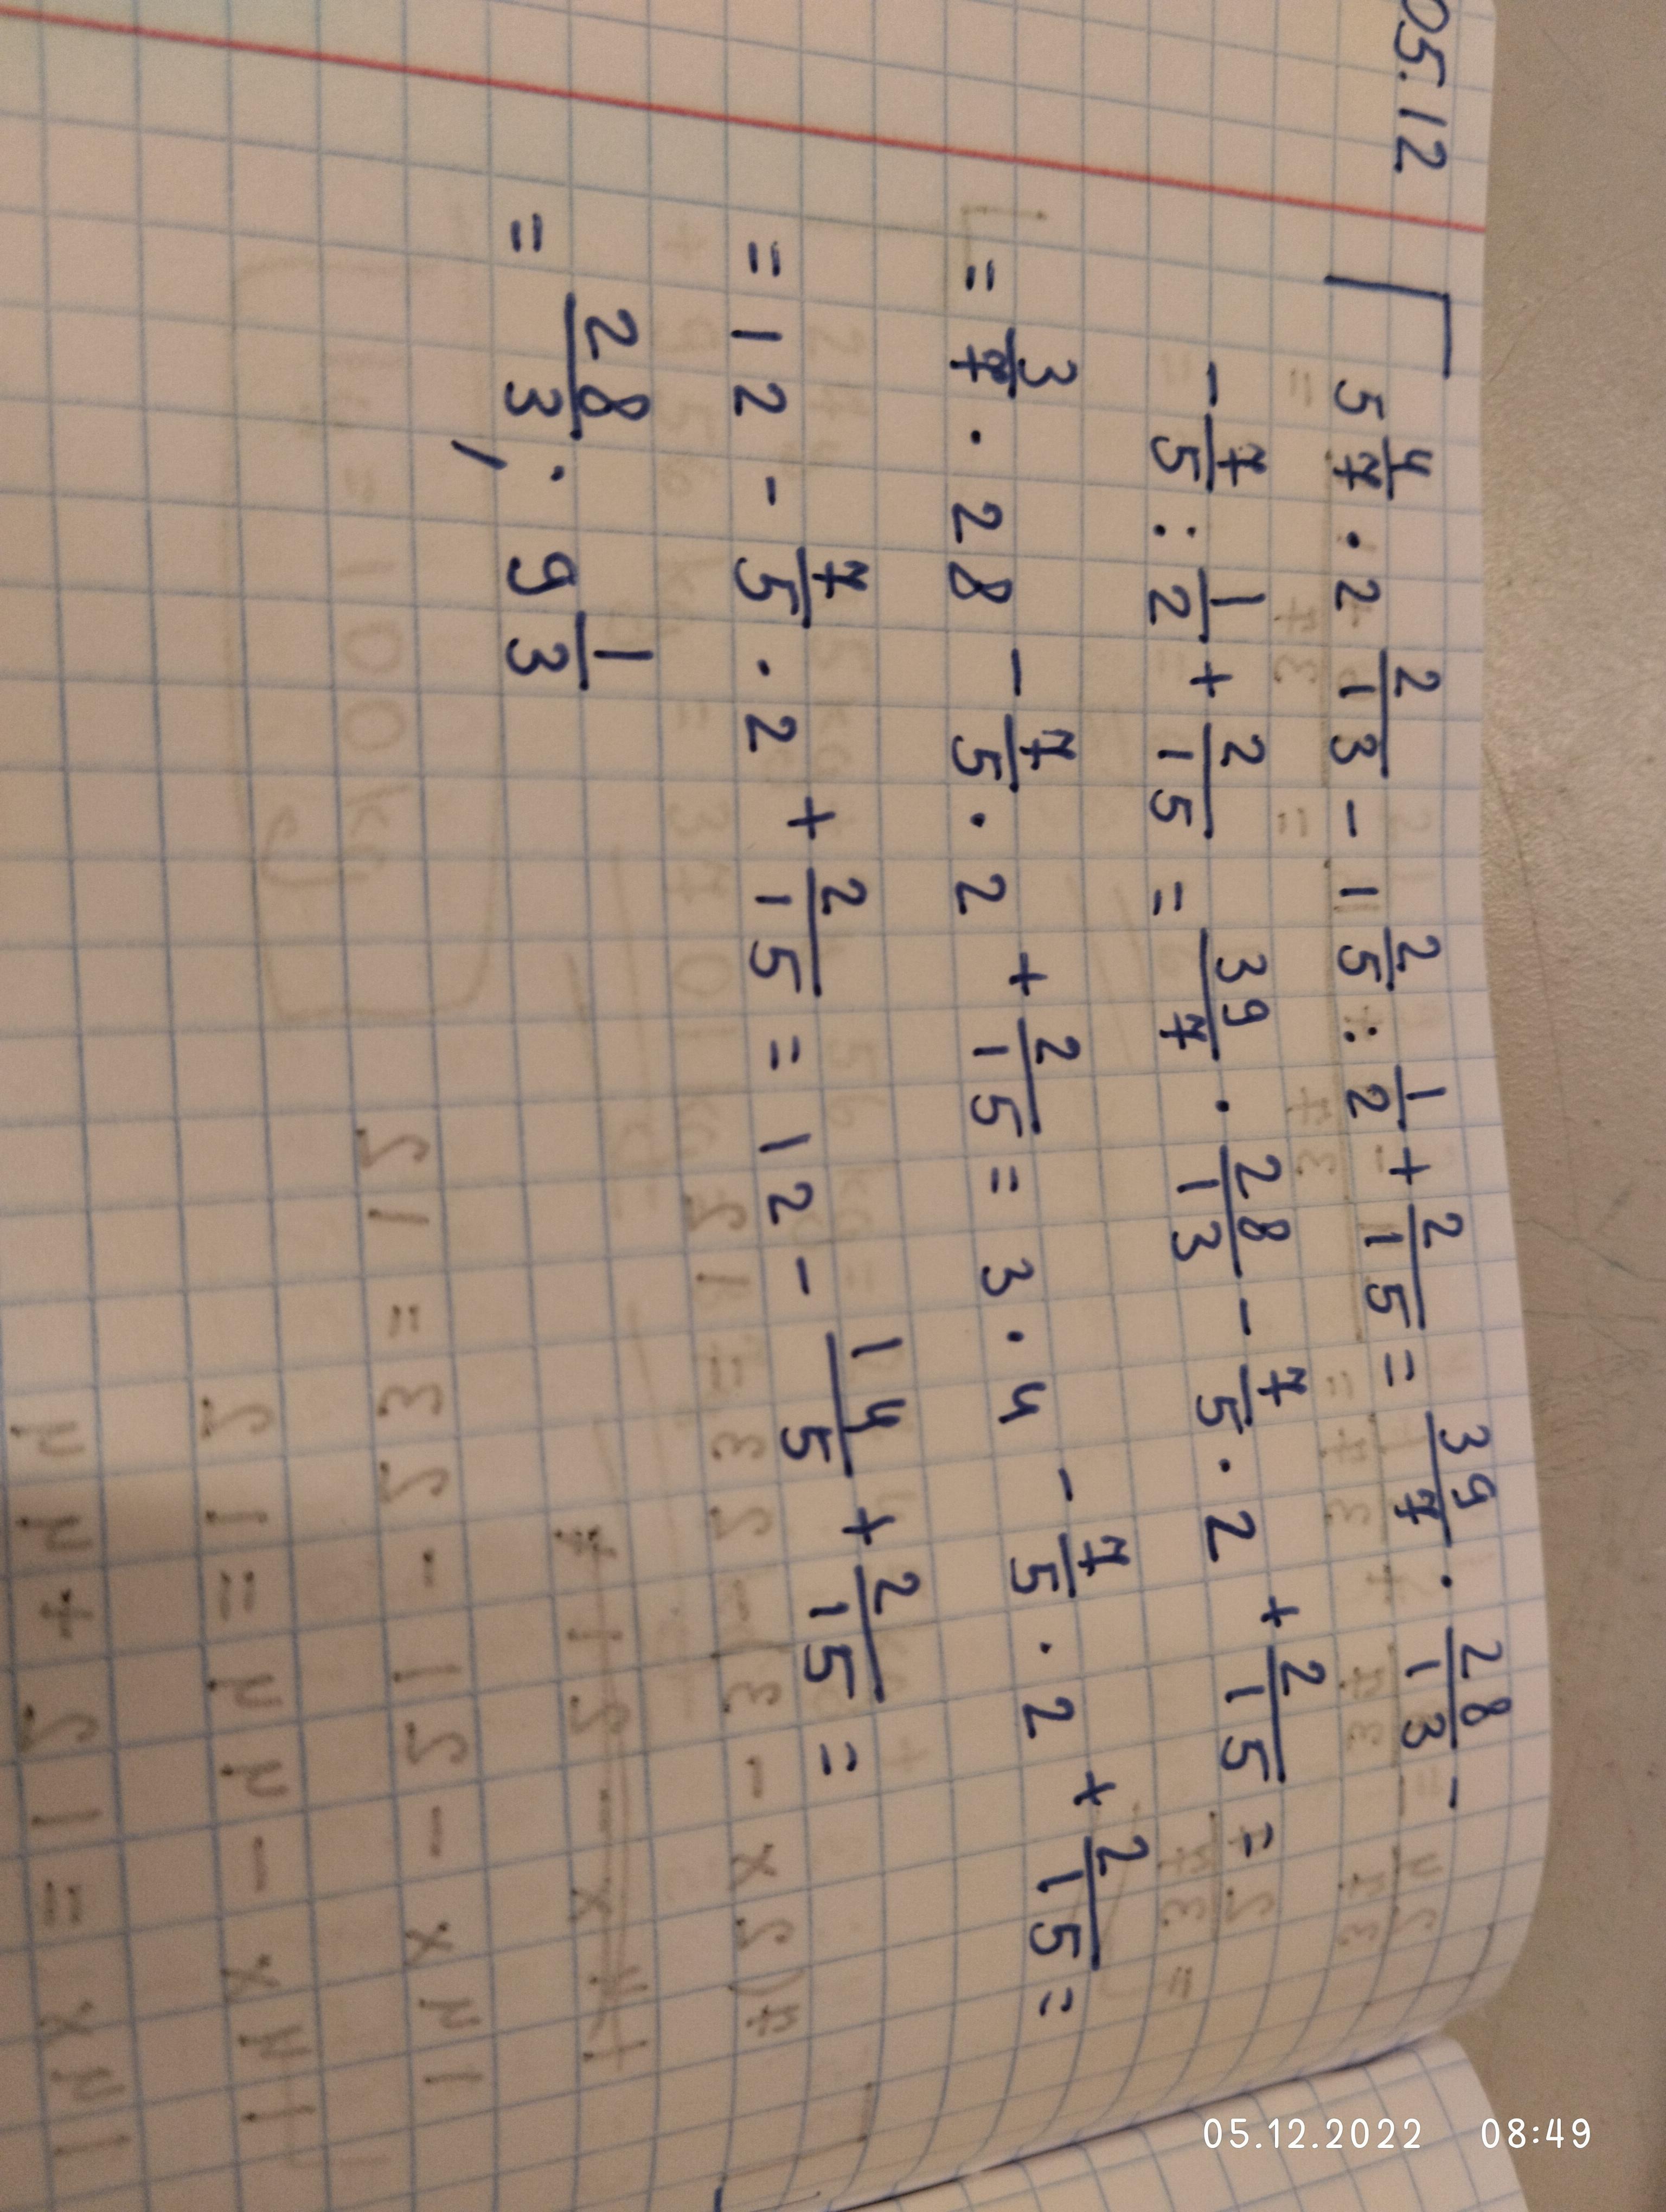 05.12
5 4/7 · 2 2/13 - 1 2/5 : 1/2 + 2/15 = 39/7 · 28/13 -
- 7/5 : 1/2 + 2/15 = 39/7 · 28/13 - 7/5 · 2 + 2/15 =
= 3/7 · 28 - 7/5 · 2 + 2/15 = 3 · 4 - 7/5 · 2 + 2/15 =
= 12 - 7/5 · 2 + 2/15 = 12 - 14/5 + 2/15 =
= 28/3; 9 1/3
05.12.2022 08:49